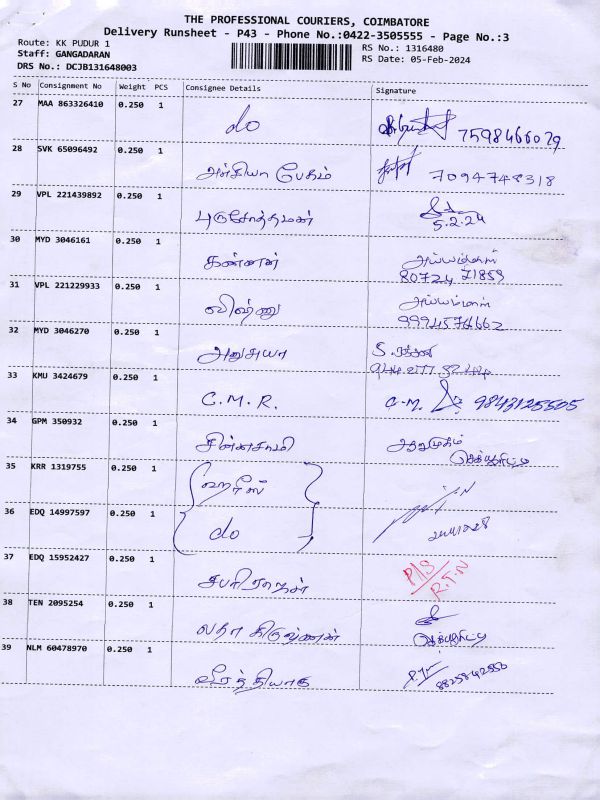 THE PROFESSIONAL COURIERS, COIMBATORE
Delivery Runsheet - P43 - Phone No.:0422-3505555 - Page No.:3
Route: KK PUDUR 1
Staff: GANGADARAN
DRS No.: DCJB131648003
RS No.: 1316480
RS Date: 05-Feb-2024
S No Consignment No Weight PCS Consignee Details Signature
27 MAA 863326410 0.250 1 do 7598466029
28 SVK 65096492 0.250 1 பேகம் 7094748318
29 VPL 221439892 0.250 1 புருசோத்தமன் 5.2.24
30 MYD 3046161 0.250 1 கண்ணன் அய்யம்மாள்
80724 71859
31 VPL 221229933 0.250 1 விஷ்ணு அய்யம்மாள்
9994574662
32 MYD 3046270 0.250 1 அனுசுயா
33 KMU 3424679 0.250 1 C.M.R. C.M. 9843125505
34 GPM 350932 0.250 1 சின்னசாமி ஆறுமுகம்
செக்யூரிட்டி
35 KRR 1319755 0.250 1 ஹரீஸ்
36 EDQ 14997597 0.250 1 do
37 EDQ 15952427 0.250 1 P/S
R.T.N
38 TEN 2095254 0.250 1 கிருஷ்ணன் செக்யூரிட்டி
39 NLM 60478970 0.250 1 8825842556